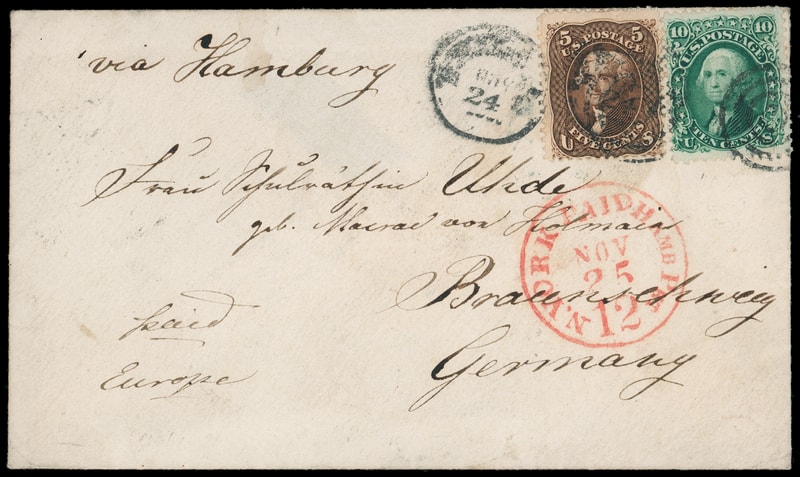 via Hamburg
24
5 5
U.S. POSTAGE
FIVE CENTS
U S
10 10
U.S. POSTAGE
TEN CENTS
U S
Frau Schulräthin Uhde
geb. von Holmain
N. YORK PAID HAMB PKT
NOV
25
12
Braunschweig
Germany
paid
Europe